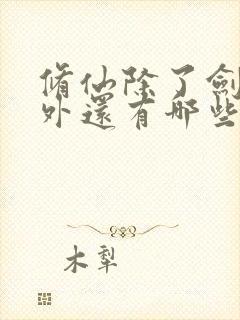 脩仙除了劍
外還有哪些
木犁